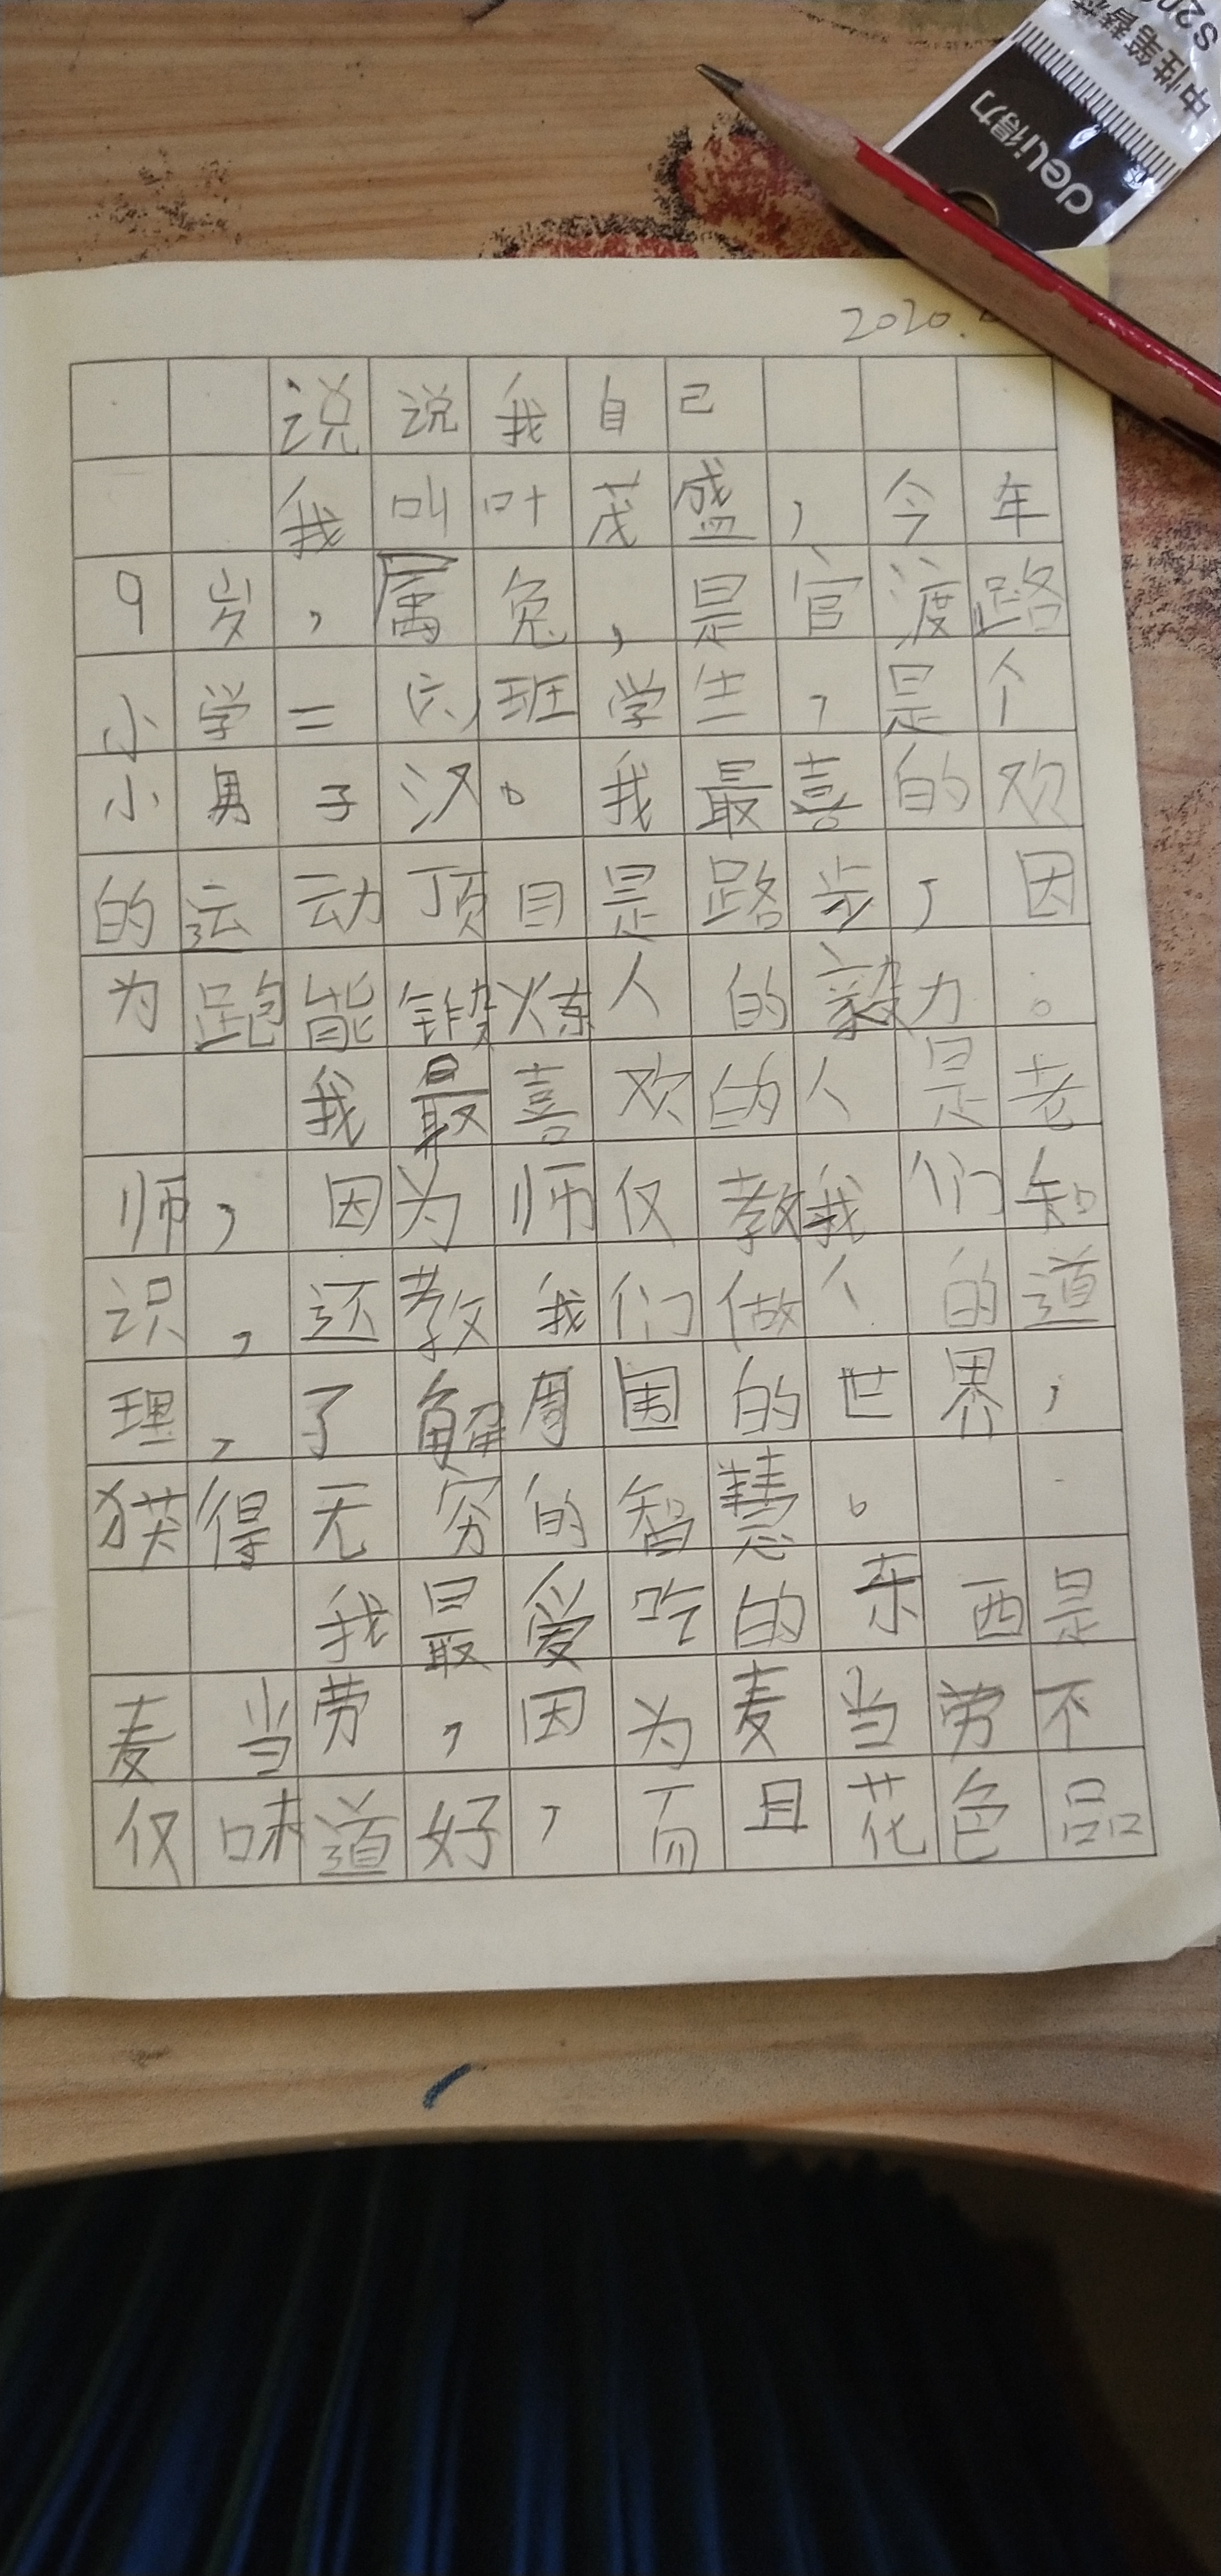 S20
中性笔替芯
deli得力
2020.
说说我自己
我叫叶茂盛，今年
9岁，属兔，是官渡路
小学二六班学生，是个
小男子汉。我最喜的欢
的运动项目是路步，因
为跑能锻炼人的毅力。
我最喜欢的人是老
师，因为师仅教我们知
识，还教我们做人的道
理，了解周围的世界，
获得无穷的智慧。
我最爱吃的东西是
麦当劳，因为麦当劳不
仅味道好，而且花色品